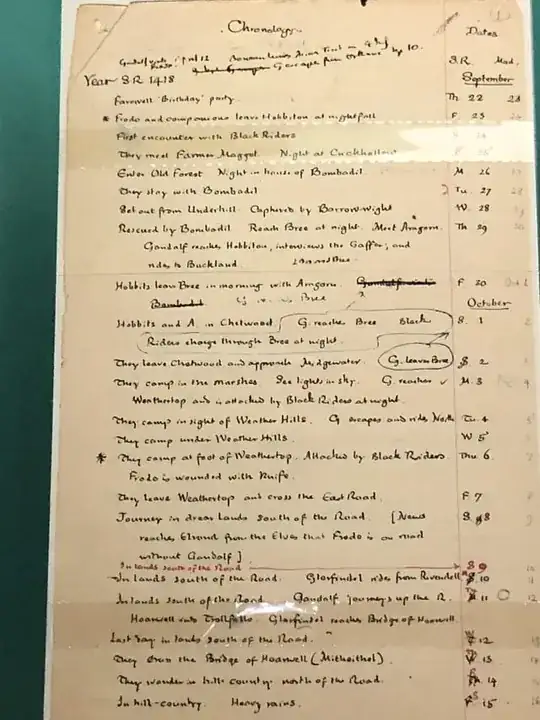 Chronology.
Dates
G. escape from Orthanc Sep 10.
S.R. Mod.
Year S.R 1418
September
Farewell 'Birthday' party. Th 22 23
* Frodo and companions leave Hobbiton at nightfall F. 23
First encounter with Black Riders S 24
They meet Farmer Maggot. Night at Crickhollow S 25
Enter Old Forest Night in house of Bombadil. M 26
They stay with Bombadil Tu. 27 28
Set out from Underhill. Captured by Barrow-wight W. 28
Rescued by Bombadil Reach Bree at night. Meet Aragorn. Th 29 30
Gandalf reaches Hobbiton, interviews the Gaffer, and
rides to Buckland.
Hobbits leave Bree in morning with Aragorn. F 30 Oct 1
Bombadil Bree October
Hobbits and A. in Chetwood G. reaches Bree Black S. 1 2
Riders charge through Bree at night.
They leave Chetwood and approach Midgewater. G. leaves Bree S. 2
They camp in the marshes. See lights in sky. G. reaches M. 3 4
Weathertop and is attacked by Black Riders at night.
They camp in sight of Weather Hills. G escapes and rides North Tu. 4
They camp under Weather Hills. W 5
* They camp at foot of Weathertop. Attacked by Black Riders. Thu 6
Frodo is wounded with knife.
They leave Weathertop and cross the East Road. F 7
Journey in drear lands South of the Road. [News S. 8
reaches Elrond from the Elves that Frodo is on road
without Gandalf]
In lands south of the Road S 9 10
In lands south of the Road. Glorfindel rides from Rivendell S. 10 11
In lands south of the Road Gandalf journeys up the R. 11 12
Hoarwell into Trollfells. Glorfindel reaches Bridge of Hoarwell
Last day in lands south of the Road. 12
They cross the Bridge of Hoarwell (Mitheithel) 13
They wander in hill-country north of the Road. 14
In hill-country. Heavy rains. 15 16